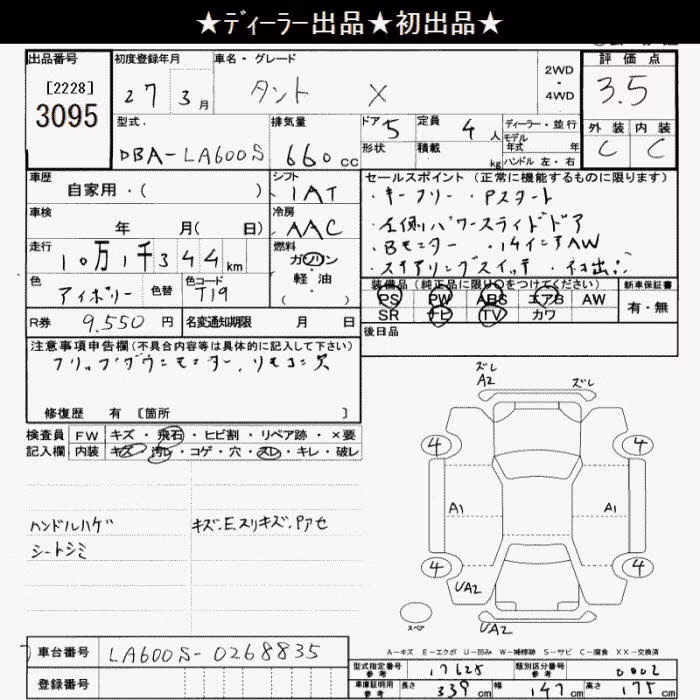 ★ディーラー出品★初出品★
出品番号 初度登録年月 車名・グレード 2WD・4WD 評価点
[2228] 3095
27 3月 タント X 3.5
型式. 排気量 ドア 5 定員 4人 ディーラー・並行 外装 内装
DBA-LA600S 660cc 形状 積載 kg モデル年式 年 ハンドル 左・右 C C
車歴 シフト セールスポイント (正常に機能するものに限ります)
自家用・( ) IAT ・キーフリー ・Pスタート
車検 冷房 ・左側パワースライドドア
年 月( 日) AAC ・Bモニター ・14インチAW
走行 燃料 ・ステアリングスイッチ
10万1千344km ガソリン
色 色替 色コード 軽油 装備品 (純正品に限り○をつけてください) 新車保証書
アイボリー T19 ( ) PS PW ABS エアB AW 有・無
R券 9.550円 名変通知期限 月 日 SR ナビ TV カワ
後日品
注意事項申告欄(不具合内容等は具体的に記入して下さい)
フリップダウンモニター.リモコン欠
修復歴 有 [箇所 ]
検査員 FW キズ・飛石・ヒビ割・リペア跡・×要
記入欄 内装 キズ・汚レ・コゲ・穴・スレ・キレ・破レ
ハンドルハゲ キズ.E.スリキズ.Pアセ
シートシミ
ズレ
A2 ズレ
4 4
A1 A1
4 4
UA2
UA2
スペア
A－キズ E－エクボ U－凹み W－補修跡 S－サビ C－腐食 XX－交換済
車台番号 LA600S-0268835
登録番号
型式指定番号 参考 17625 類別区分番号 参考 0002
車庫証明用 参考 長さ 339cm 幅 147cm 高さ 175cm